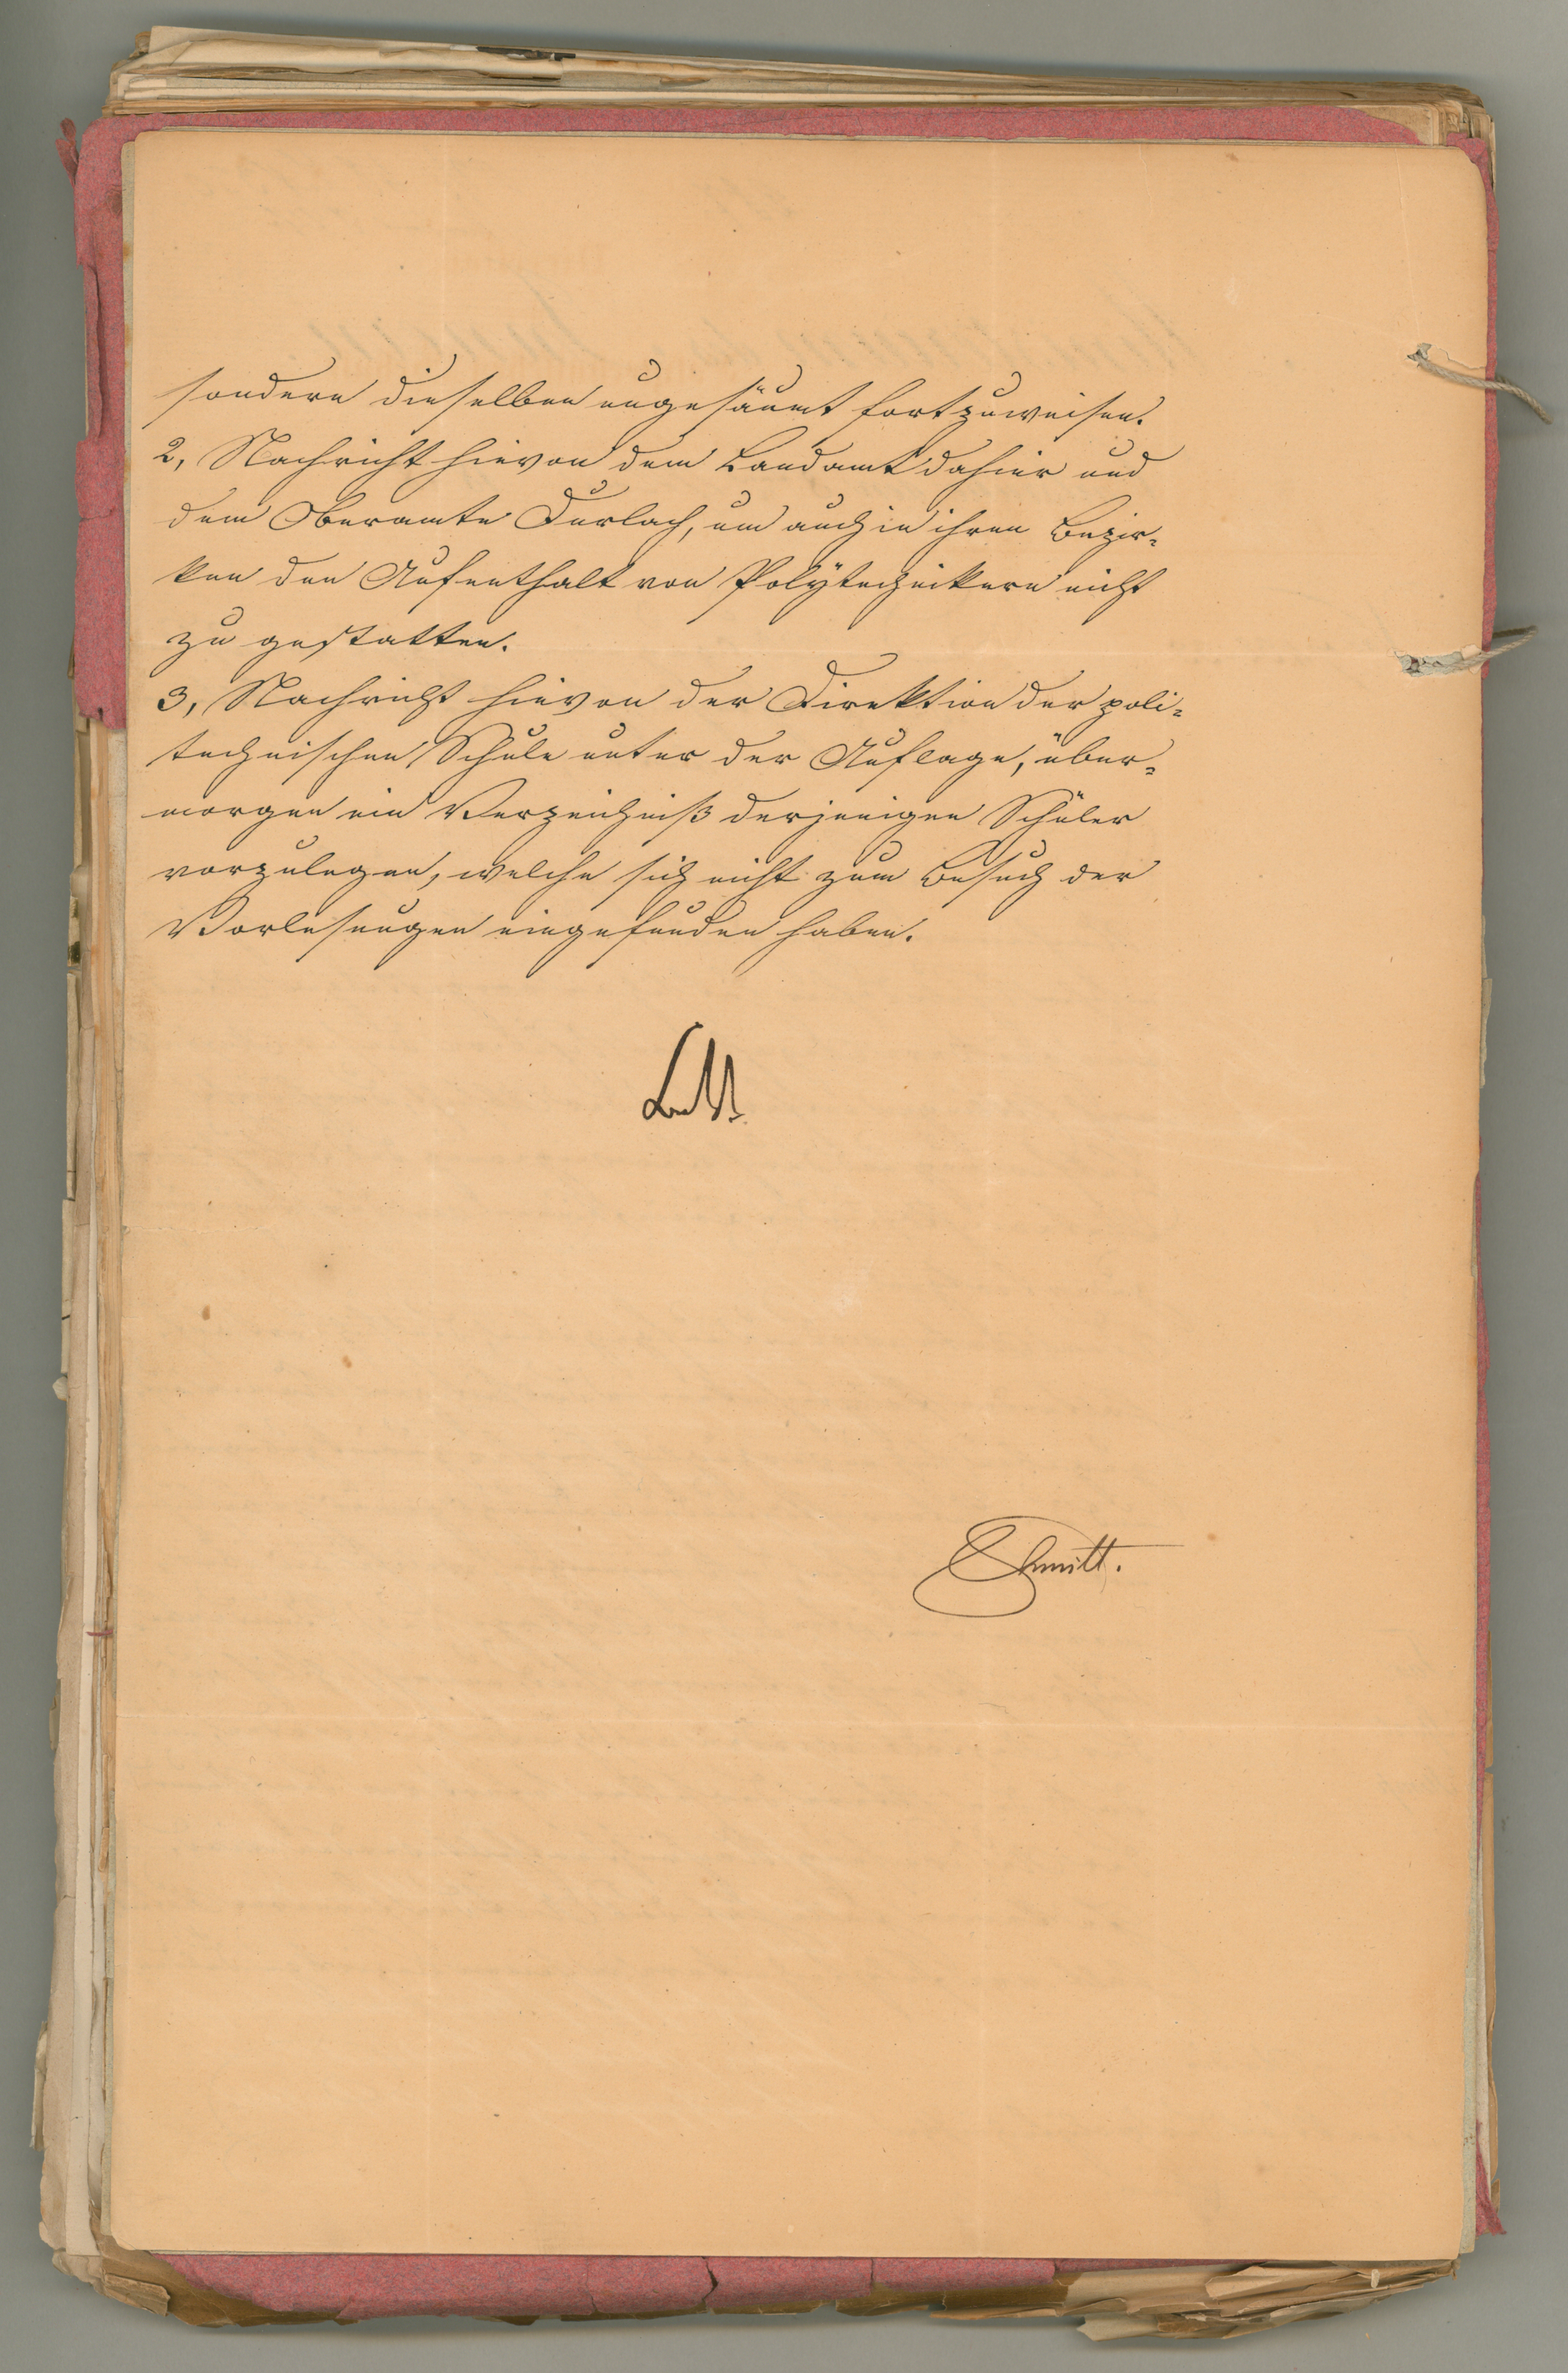 sondern dieselben ungesäumt fortzuweisen.
2, Nachricht hievon dem Landamt dahier und
dem Oberamte Durlach, um auch in ihren Bezir-
ken den Aufenthalt von Polÿtechnikern nicht
zu gestatten.
3, Nachricht hievon der Direktion der poli-
technischen Schule unter der Auflage, über-
morgen ein Verzeichniß derjenigen Schüler
vorzulegen, welche sich nicht zum Besuch der
Vorlesungen eingefunden haben.
Schmitt.